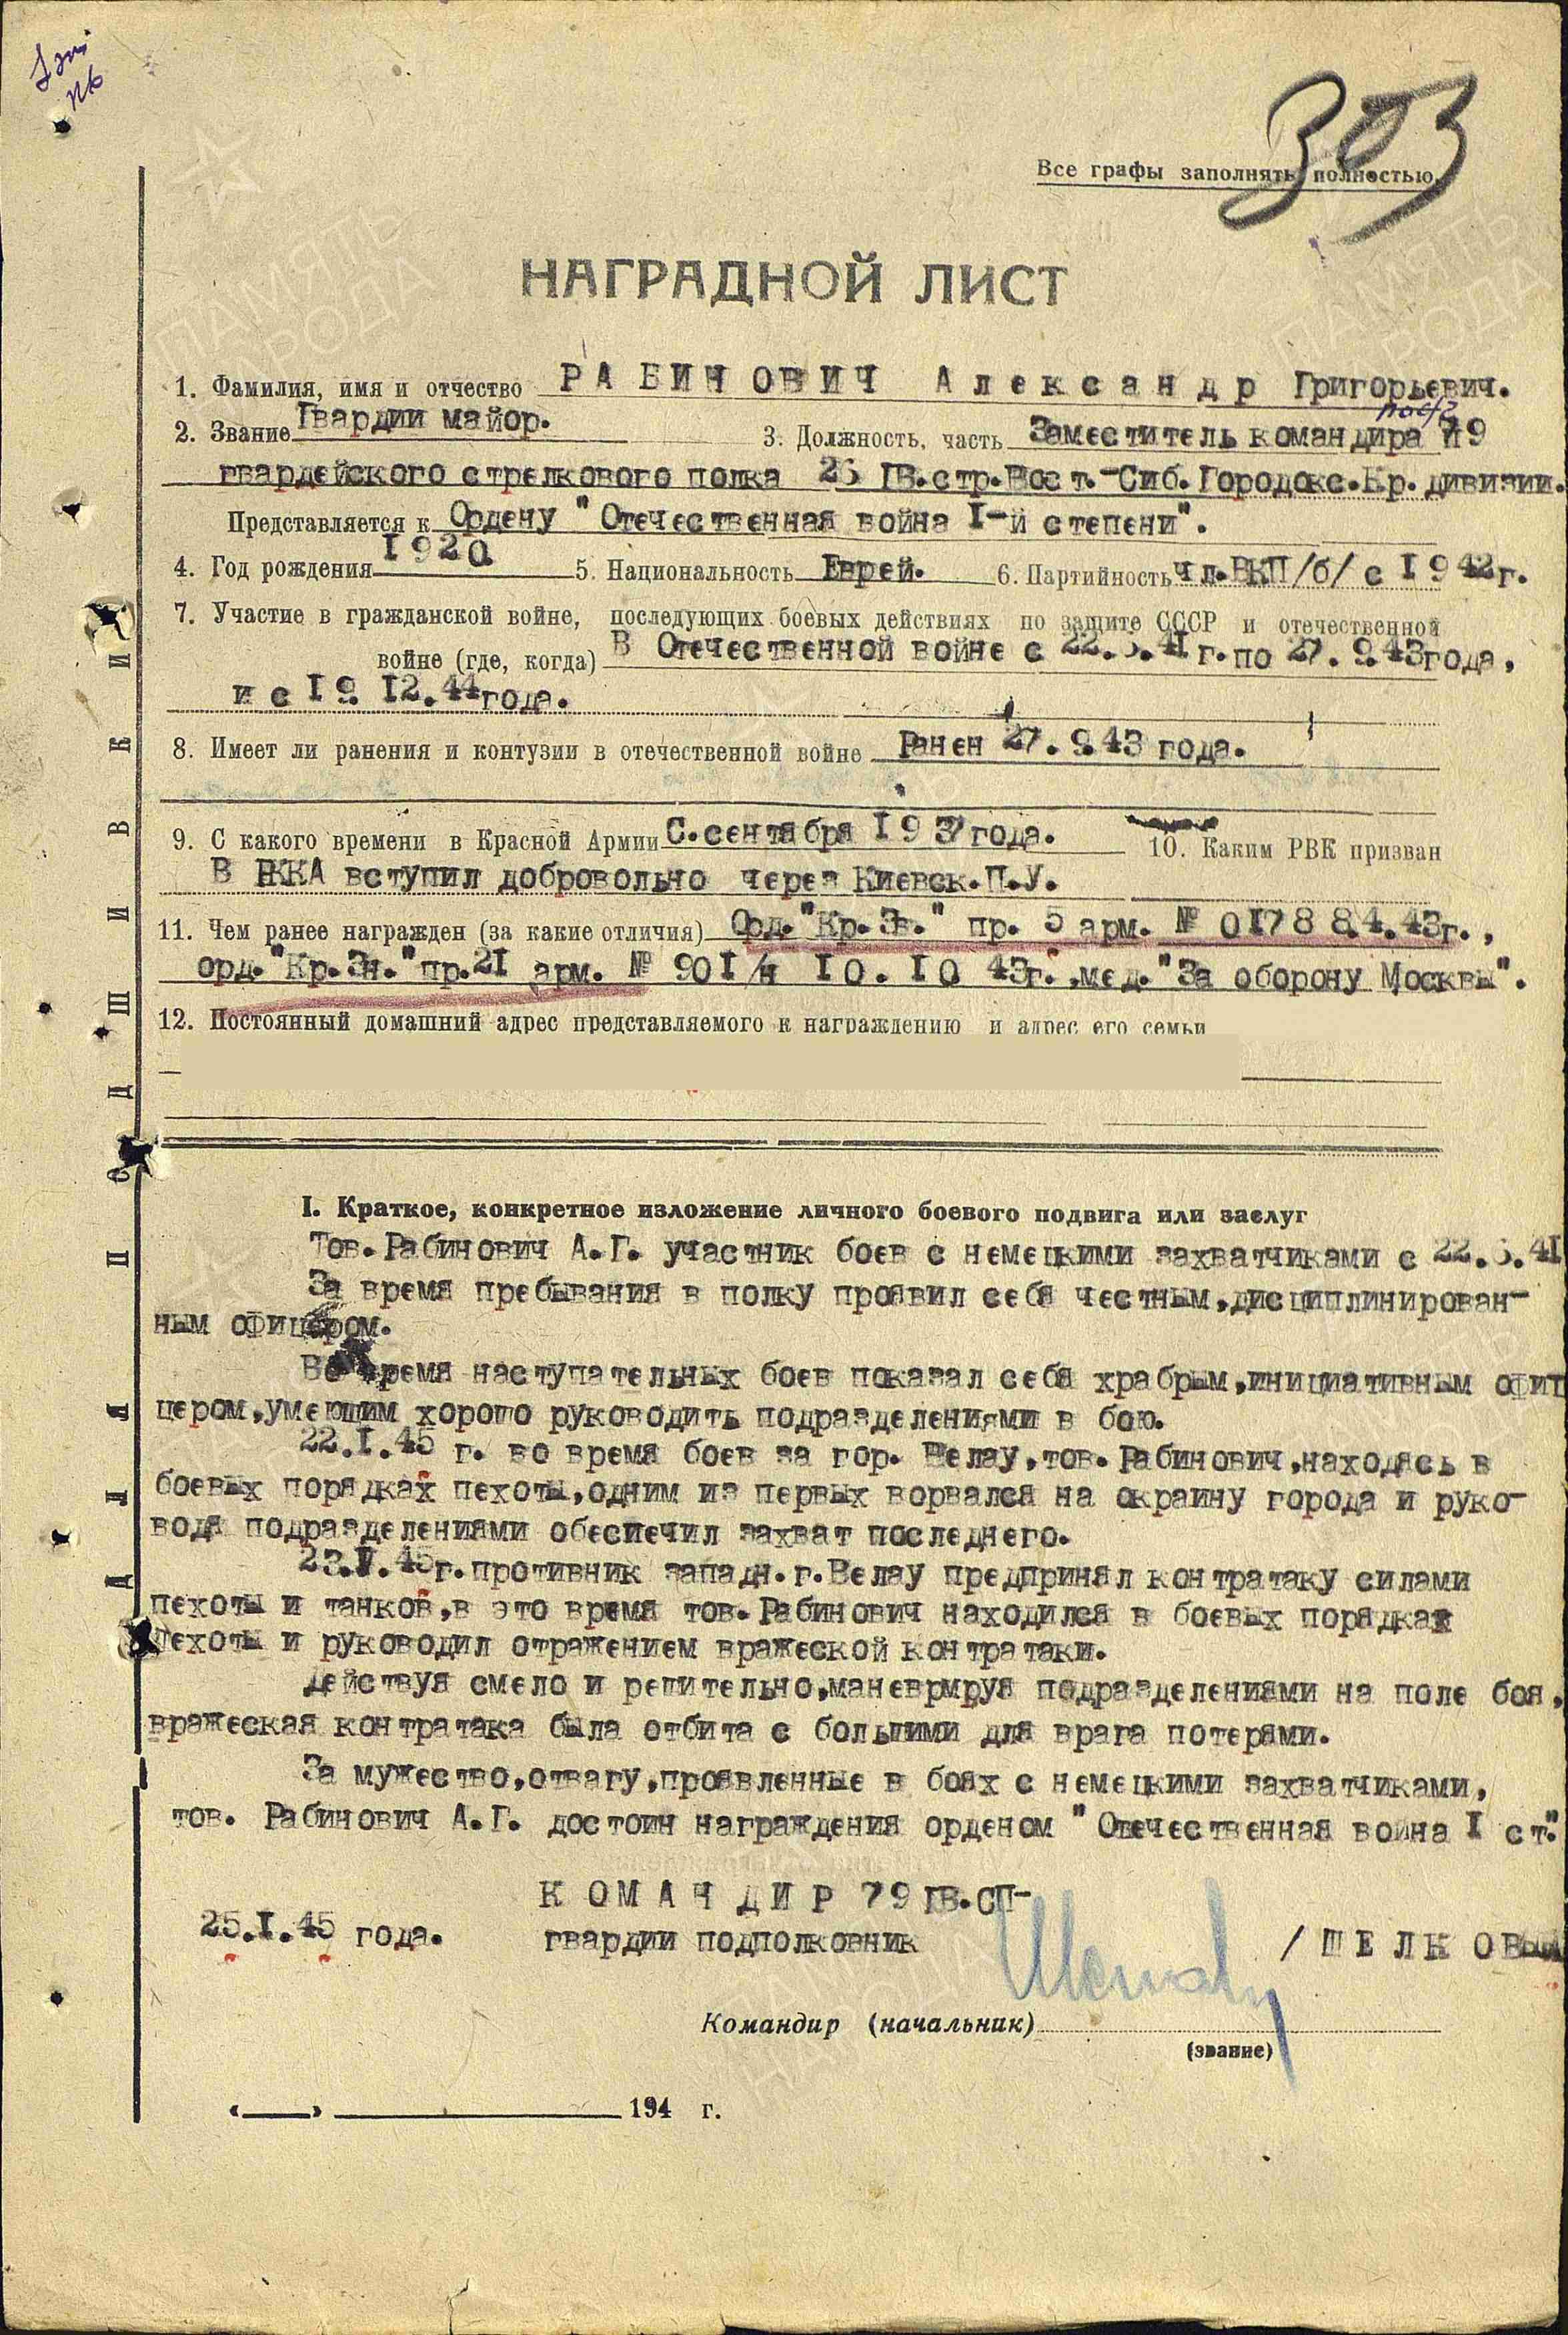 303
Все графы заполнять полностью.
НАГРАДНОЙ ЛИСТ
1. Фамилия, имя и отчество РАБИНОВИЧ Александр Григорьевич.
2. Звание Гвардии майор. 3. Должность, часть Заместитель командира 79
гвардейского стрелкового полка 26 Гв.стр.Вост.-Сиб.Городокс.Кр. дивизии.
Представляется к Ордену "Отечественная война I-й степени".
4. Год рождения 1920 5. Национальность Еврей. 6. Партийность чл.ВКП/б/ с 1942г.
7. Участие в гражданской войне, последующих боевых действиях по защите СССР и отечественной
войне (где, когда) В Отечественной войне с 22.6.41 г. по 27.9.43года,
и с 19.12.44года.
8. Имеет ли ранения и контузии в отечественной войне Ранен 27.9.43 года.
9. С какого времени в Красной Армии С.сентября 1937года. 10. Каким РВК призван
В РККА вступил добровольно через Киевск.П.У.
11. Чем ранее награжден (за какие отличия) Орд."Кр.Зв." пр. 5 арм. № 0178 8.4.43г.,
орд."Кр.Зн."пр.21 арм. № 901/н 10.10 43г.,мед."За оборону Москвы".
12. Постоянный домашний адрес представляемого к награждению и адрес его семьи
I. Краткое, конкретное изложение личного боевого подвига или заслуг
Тов.Рабинович А.Г. участник боев с немецкими захватчиками с 22.6.41
За время пребывания в полку проявил себя честным,дисциплинирован-
ным офицером.
Во время наступательных боев показал себя храбрым,инициативным офи
цером,умеющим хорошо руководить подразделениями в бою.
22.I.45 г. во время боев за гор. Велау,тов.Рабинович,находясь в
боевых порядках пехоты,одним из первых ворвался на окраину города и руко-
водя подразделениями обеспечил захват последнего.
23.I.45г.противник западн.г.Велау предпринял контратаку силами
пехоты и танков,в это время тов.Рабинович находился в боевых порядках
пехоты и руководил отражением вражеской контратаки.
Действуя смело и решительно,маневрмруя подразделениями на поле боя,
вражеская контратака была отбита с большими для врага потерями.
За мужество,отвагу,проявленные в боях с немецкими захватчиками,
тов. Рабинович А.Г. достоин награждения орденом "Отечественная война I ст."
КОМАНДИР 79 ГВ.СП-
25.I.45 года. гвардии подполковник /ШЕЛКОВЫЙ
Командир (начальник)
(звание)
« » 194 г.
ПОДШИВКИ
ДЛЯ
ПАМЯТЬ НАРОДА